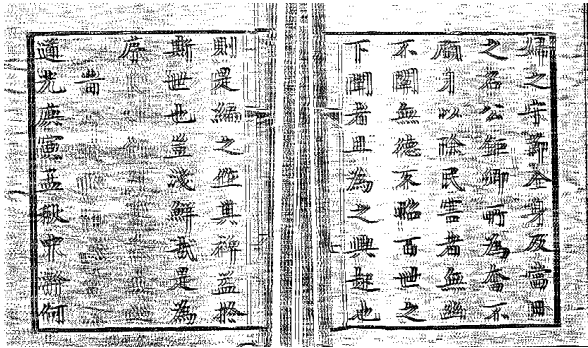 婦之守節全身及當日
之名公鉅卿所為奮不
顧身以除民害者無幽
不闡無德不昭百世之
下聞者且為之興起也
則是編之作其裨益於
斯世也豈淺鮮哉是為
序
旹
道光庚寅孟秋中澣何